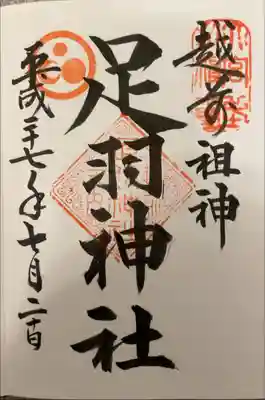 越前の祖神
足羽神社
平成二十七年七月二十日